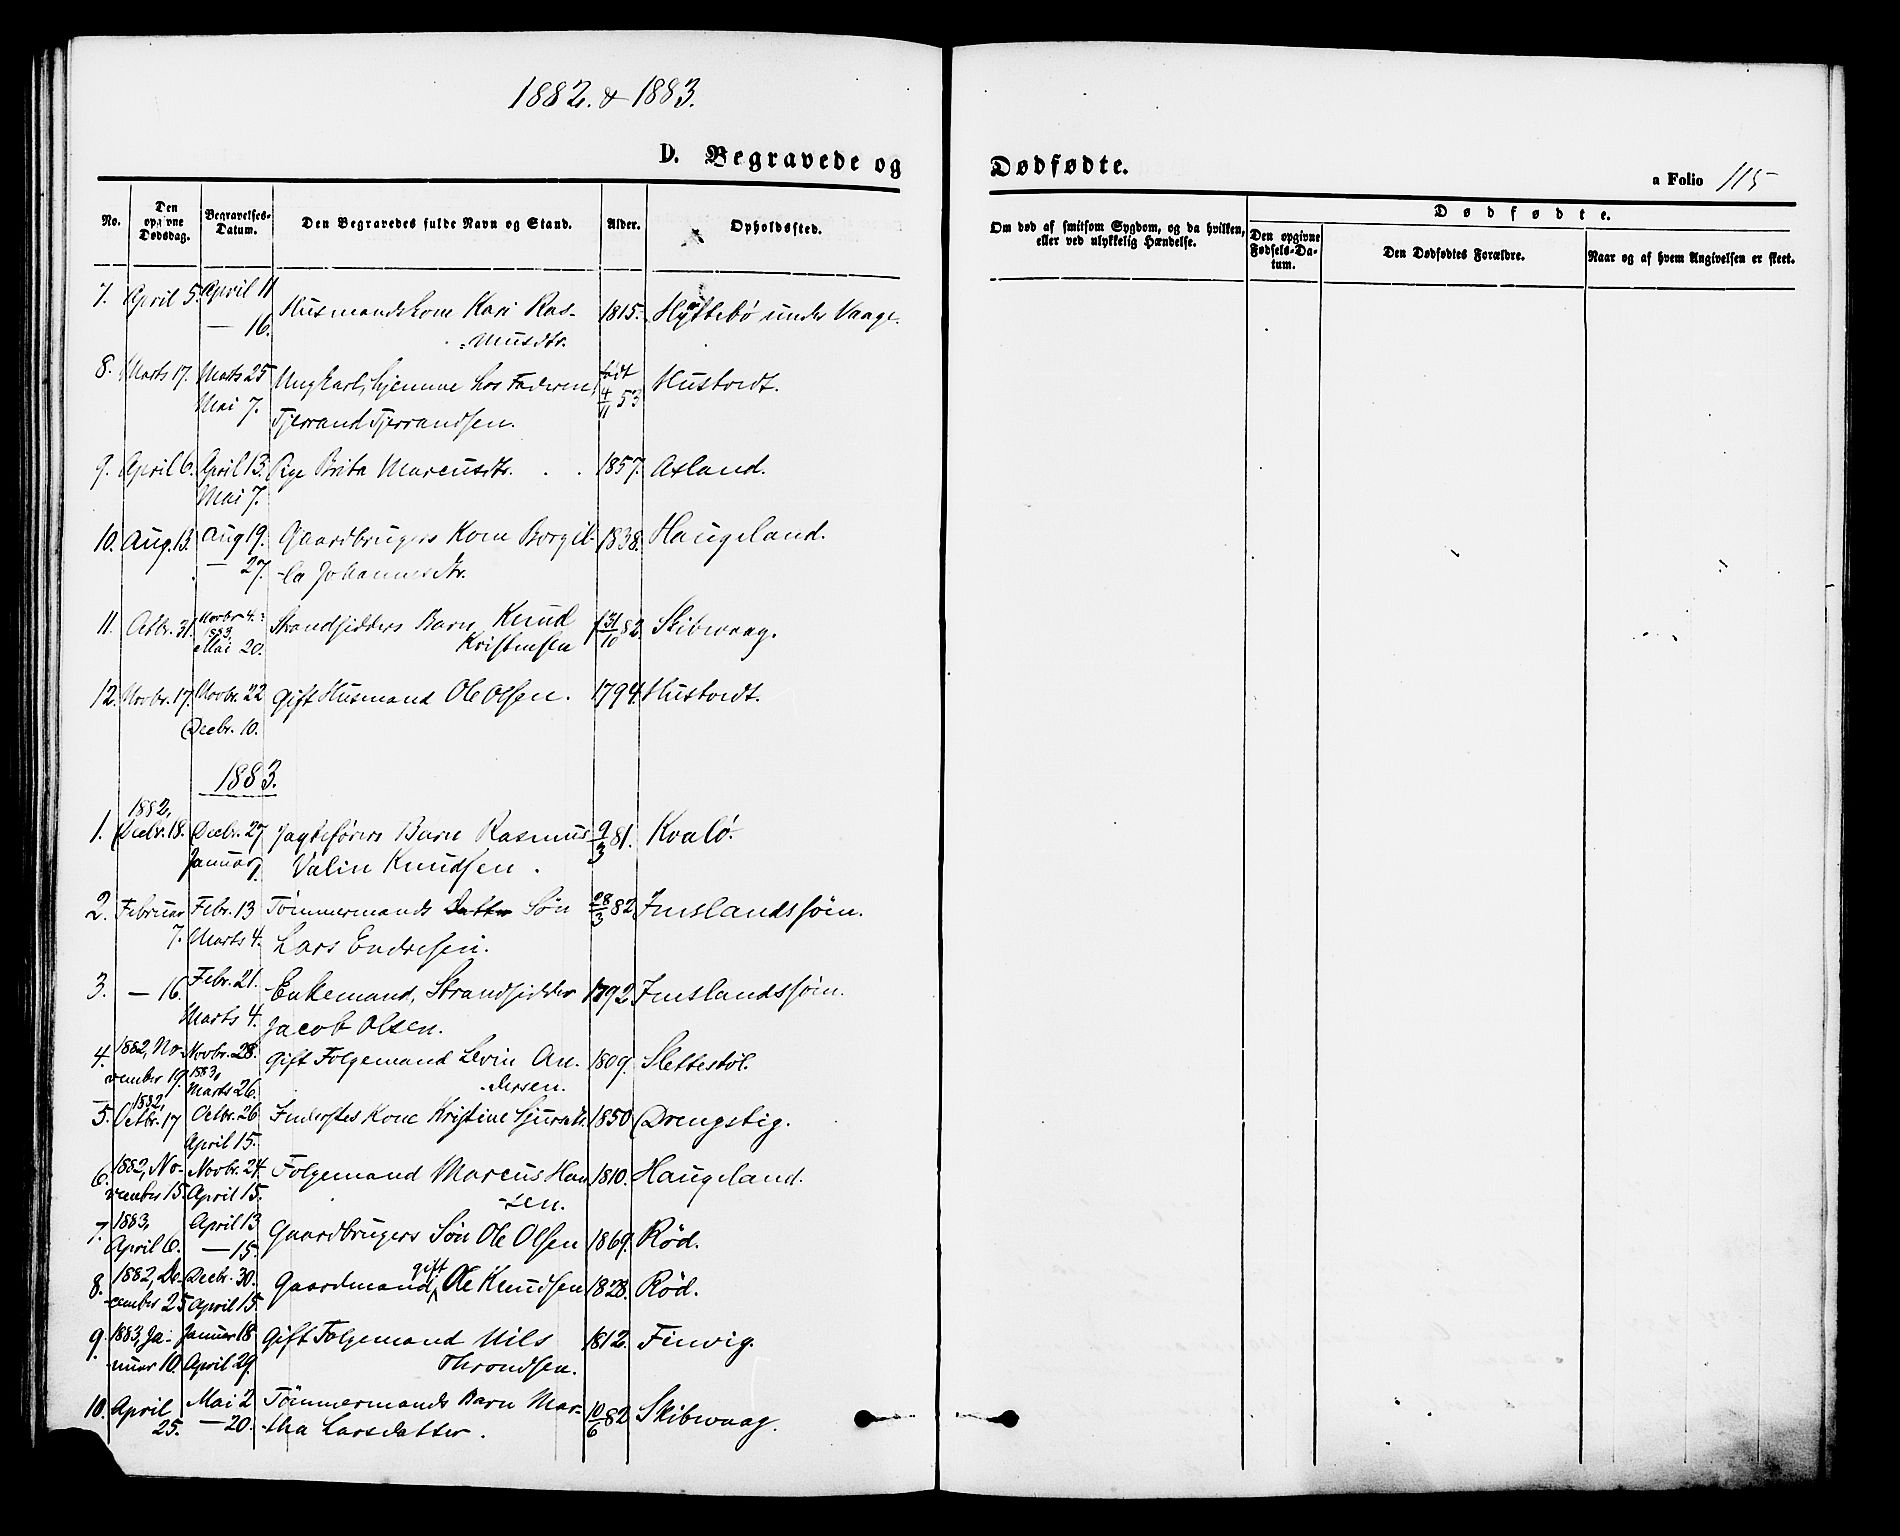 1882. & 1883.
D. Begravede og
Dødfødte.
a Folio 115
No.
Den opgivne Dødsdag.
Begravelses-Datum.
Den Begravedes fulde Navn og Stand.
Alder.
Opholdssted.
Om død af smitsom Sygdom, og da hvilken,
eller ved ulykkelig Hændelse.
Dødfødte.
Den opgivne
Fødsels-Da-
tum.
Den Dødfødtes Forældre.
Naar og af hvem Angivelsen er skeet.
7. April 5. April 11 Husmandskone Kari Ras- 1815. Hyttebö under Vaage.
— 16. musdtr.
8. Marts 17. Marts 25 Ungkarl, hjemme hos Faderen, født 4/11 53 Hustvedt.
Mai 7. Tjerrand Tjerrandsen.
9. April 6. April 13. Pige Brita Marcusdtr. 1857. Axland.
Mai 7.
10. Aug. 13. Aug 19. Gaardbrugers Kone Borgil- 1838. Haugeland.
— 27. la Johannesdtr.
11. Octbr. 31. Novbr 4. Strandsidders Barn Knud f 31/10 82. Skibevaag.
1883. Mai 20. Kristensen
12. Novbr. 17. Novbr. 22 Gift Husmand Ole Olsen. 1794. Hustvedt.
Decbr. 10.
1883.
1882,
1. Decbr. 18. Decbr. 27 Jagteförers Barn Rasmus 9/3 81. Kvalö.
Januar 7. Valin Knudsen.
2. Februar Febr. 13 Tömmermands Datter Sön 28/3 82 Imslandssöen.
7. Marts 4. Lars Endresen.
3. — 16. Febr. 21. Enkemand, Strandsidder 1792 Imslandssöen.
Marts 4. Jacob Olsen.
4. 1882, No- Novbr. 28. Gift Folgemand Levin An- 1809. Slettestöl.
vember 19. 1883, Marts 26. dersen.
1882,
5. Octbr. 17 Octbr. 26 Inderstes Kone Kristine Sjursdtr. 1850 Drengstig.
April 15.
6. 1882, No- Novbr. 24. Folgemand Marcus Han 1810. Haugeland.
vember 15. April 15. sen.
7. 1883, April 13 Gaardbrugers Sön Ole Olsen 1869. Röd.
April 6. — 15.
8. 1882, De- Decbr. 30. Gaardmand, gift Ole Knudsen 1828. Röd.
cember 25 April 15.
9. 1883, Ja- Januar 18 Gift Folgemand Nils 1812. Finvig.
nuar 10. April 29. Throndsen.
10. April Mai 2 Tömmermands Barn Mar- 10/6 82 Skibevaag.
25. — 20. tha Larsdatter.